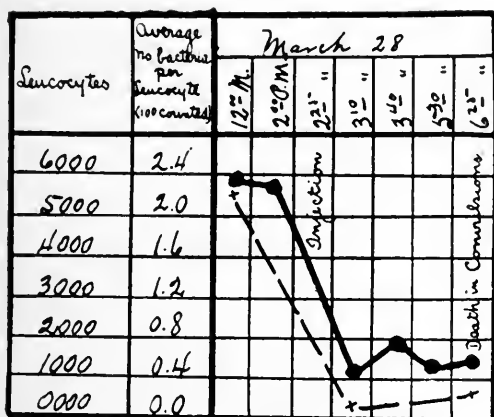 Leucocytes
Average
No bacteria
per
Leucocyte
(100 counted)
March 28
12⁰⁰ M.
2⁰⁰ P.M.
2²⁵ "
3¹⁰ "
3⁴⁰ "
5³⁰ "
6²⁵ "
6000 2.4
5000 2.0
4000 1.6
3000 1.2
2000 0.8
1000 0.4
0000 0.0
Injection
Death in Convulsions